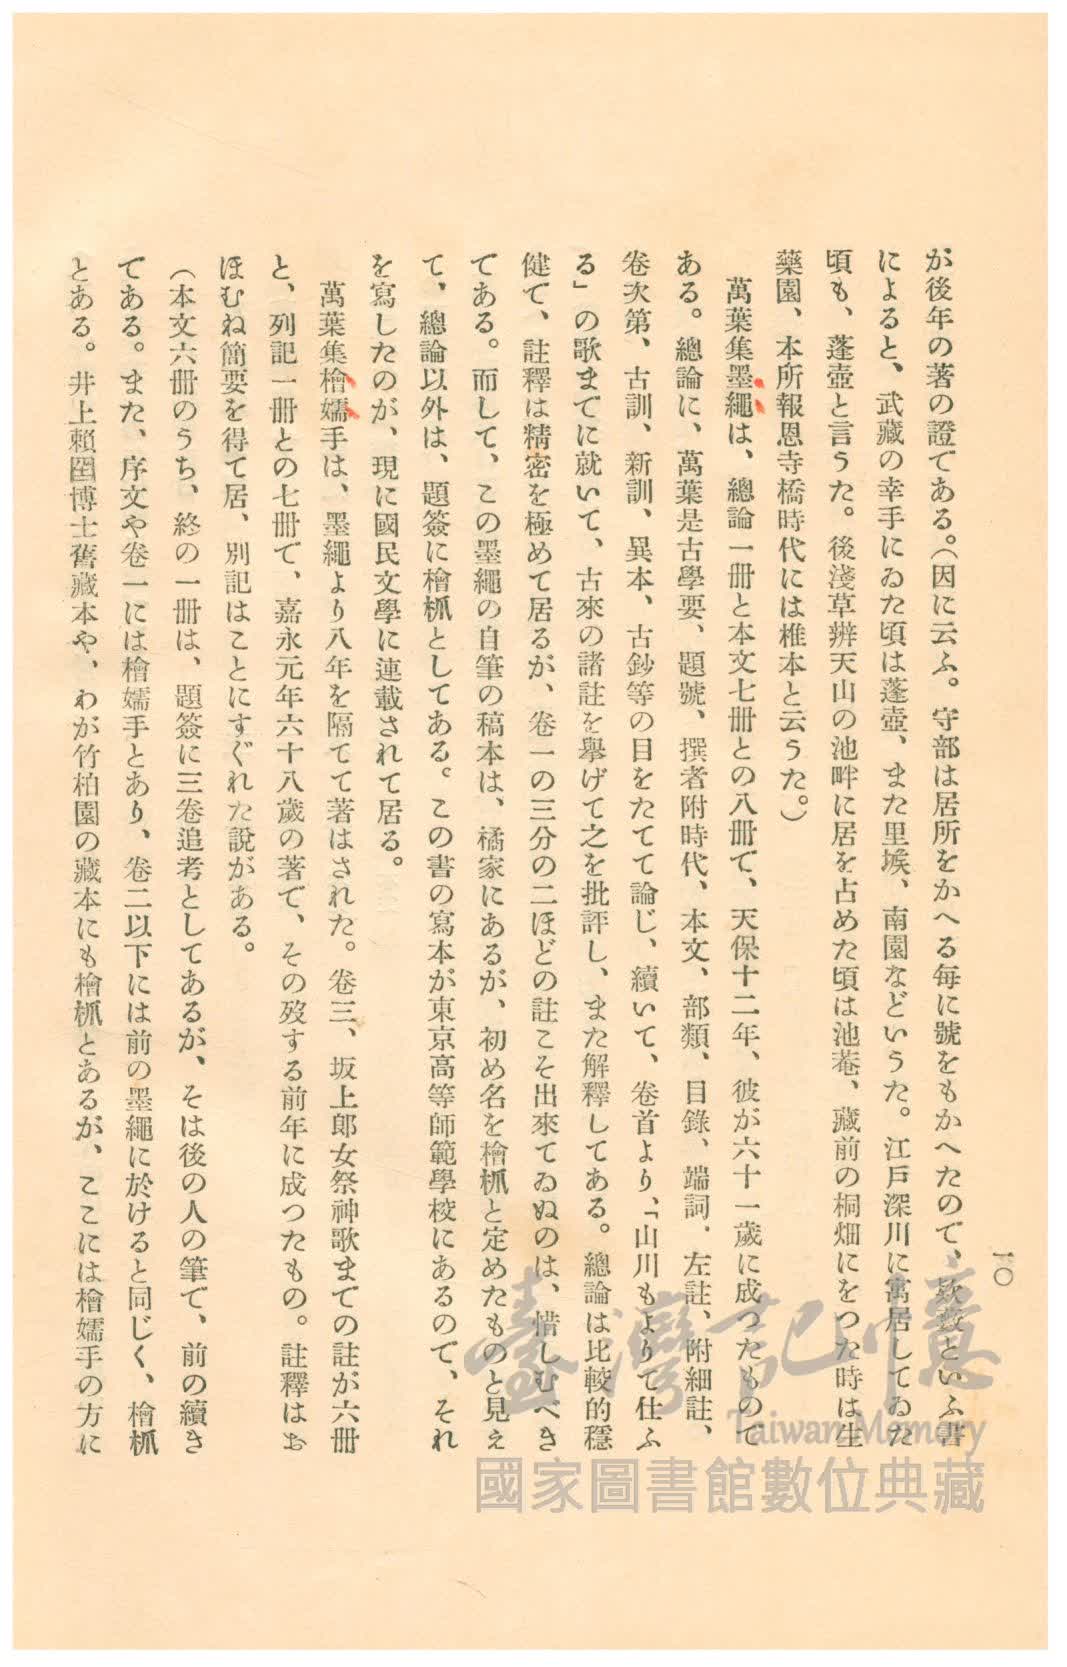 一〇
が後年の著の證である。(因に云ふ。守部は居所をかへる每に號をもかへたので、欵款といふ書
によると、武藏の幸手にゐた頃は蓬壺、また里埃、南園などいうた。江戸深川に寓居してゐた
頃も、蓬壺と言うた。後淺草辨天山の池畔に居を占めた頃は池菴、藏前の桐畑にをつた時は生
藥園、本所報恩寺橋時代には椎本と云うた。)
萬葉集墨繩は、總論一册と本文七册との八册で、天保十二年、彼が六十一歲に成つたもので
ある。總論に、萬葉是古學要、題號、撰者附時代、本文、部類、目錄、端詞、左註、附細註、
卷次第、古訓、新訓、異本、古鈔等の目をたてて論じ、續いて、卷首より、「山川もよりて仕ふ
る」の歌までに就いて、古來の諸註を擧げて之を批評し、また解釋してある。總論は比較的穩
健で、註釋は精密を極めて居るが、卷一の三分の二ほどの註こそ出來てゐぬのは、惜しむべき
である。而して、この墨繩の自筆の稿本は、橘家にあるが、初め名を檜㭟と定めたものと見え
て、總論以外は、題簽に檜㭟としてある。この書の寫本が東京高等師範學校にあるので、それ
を寫したのが、現に國民文學に連載されて居る。
萬葉集檜嬬手は、墨繩より八年を隔てて著はされた。卷三、坂上郎女祭神歌までの註が六册
と、列記一册との七册で、嘉永元年六十八歲の著で、その歿する前年に成つたもの。註釋はお
ほむね簡要を得て居、別記はことにすぐれた說がある。
(本文六册のうち、終の一册は、題簽に三卷追考としてあるが、そは後の人の筆で、前の續き
である。また、序文や卷一には檜嬬手とあり、卷二以下には前の墨繩に於けると同じく、檜㭟
とある。井上賴圀博士舊藏本や、わが竹柏園の藏本にも檜㭟とあるが、ここには檜嬬手の方に
臺灣記憶
Taiwan Memory
國家圖書館數位典藏